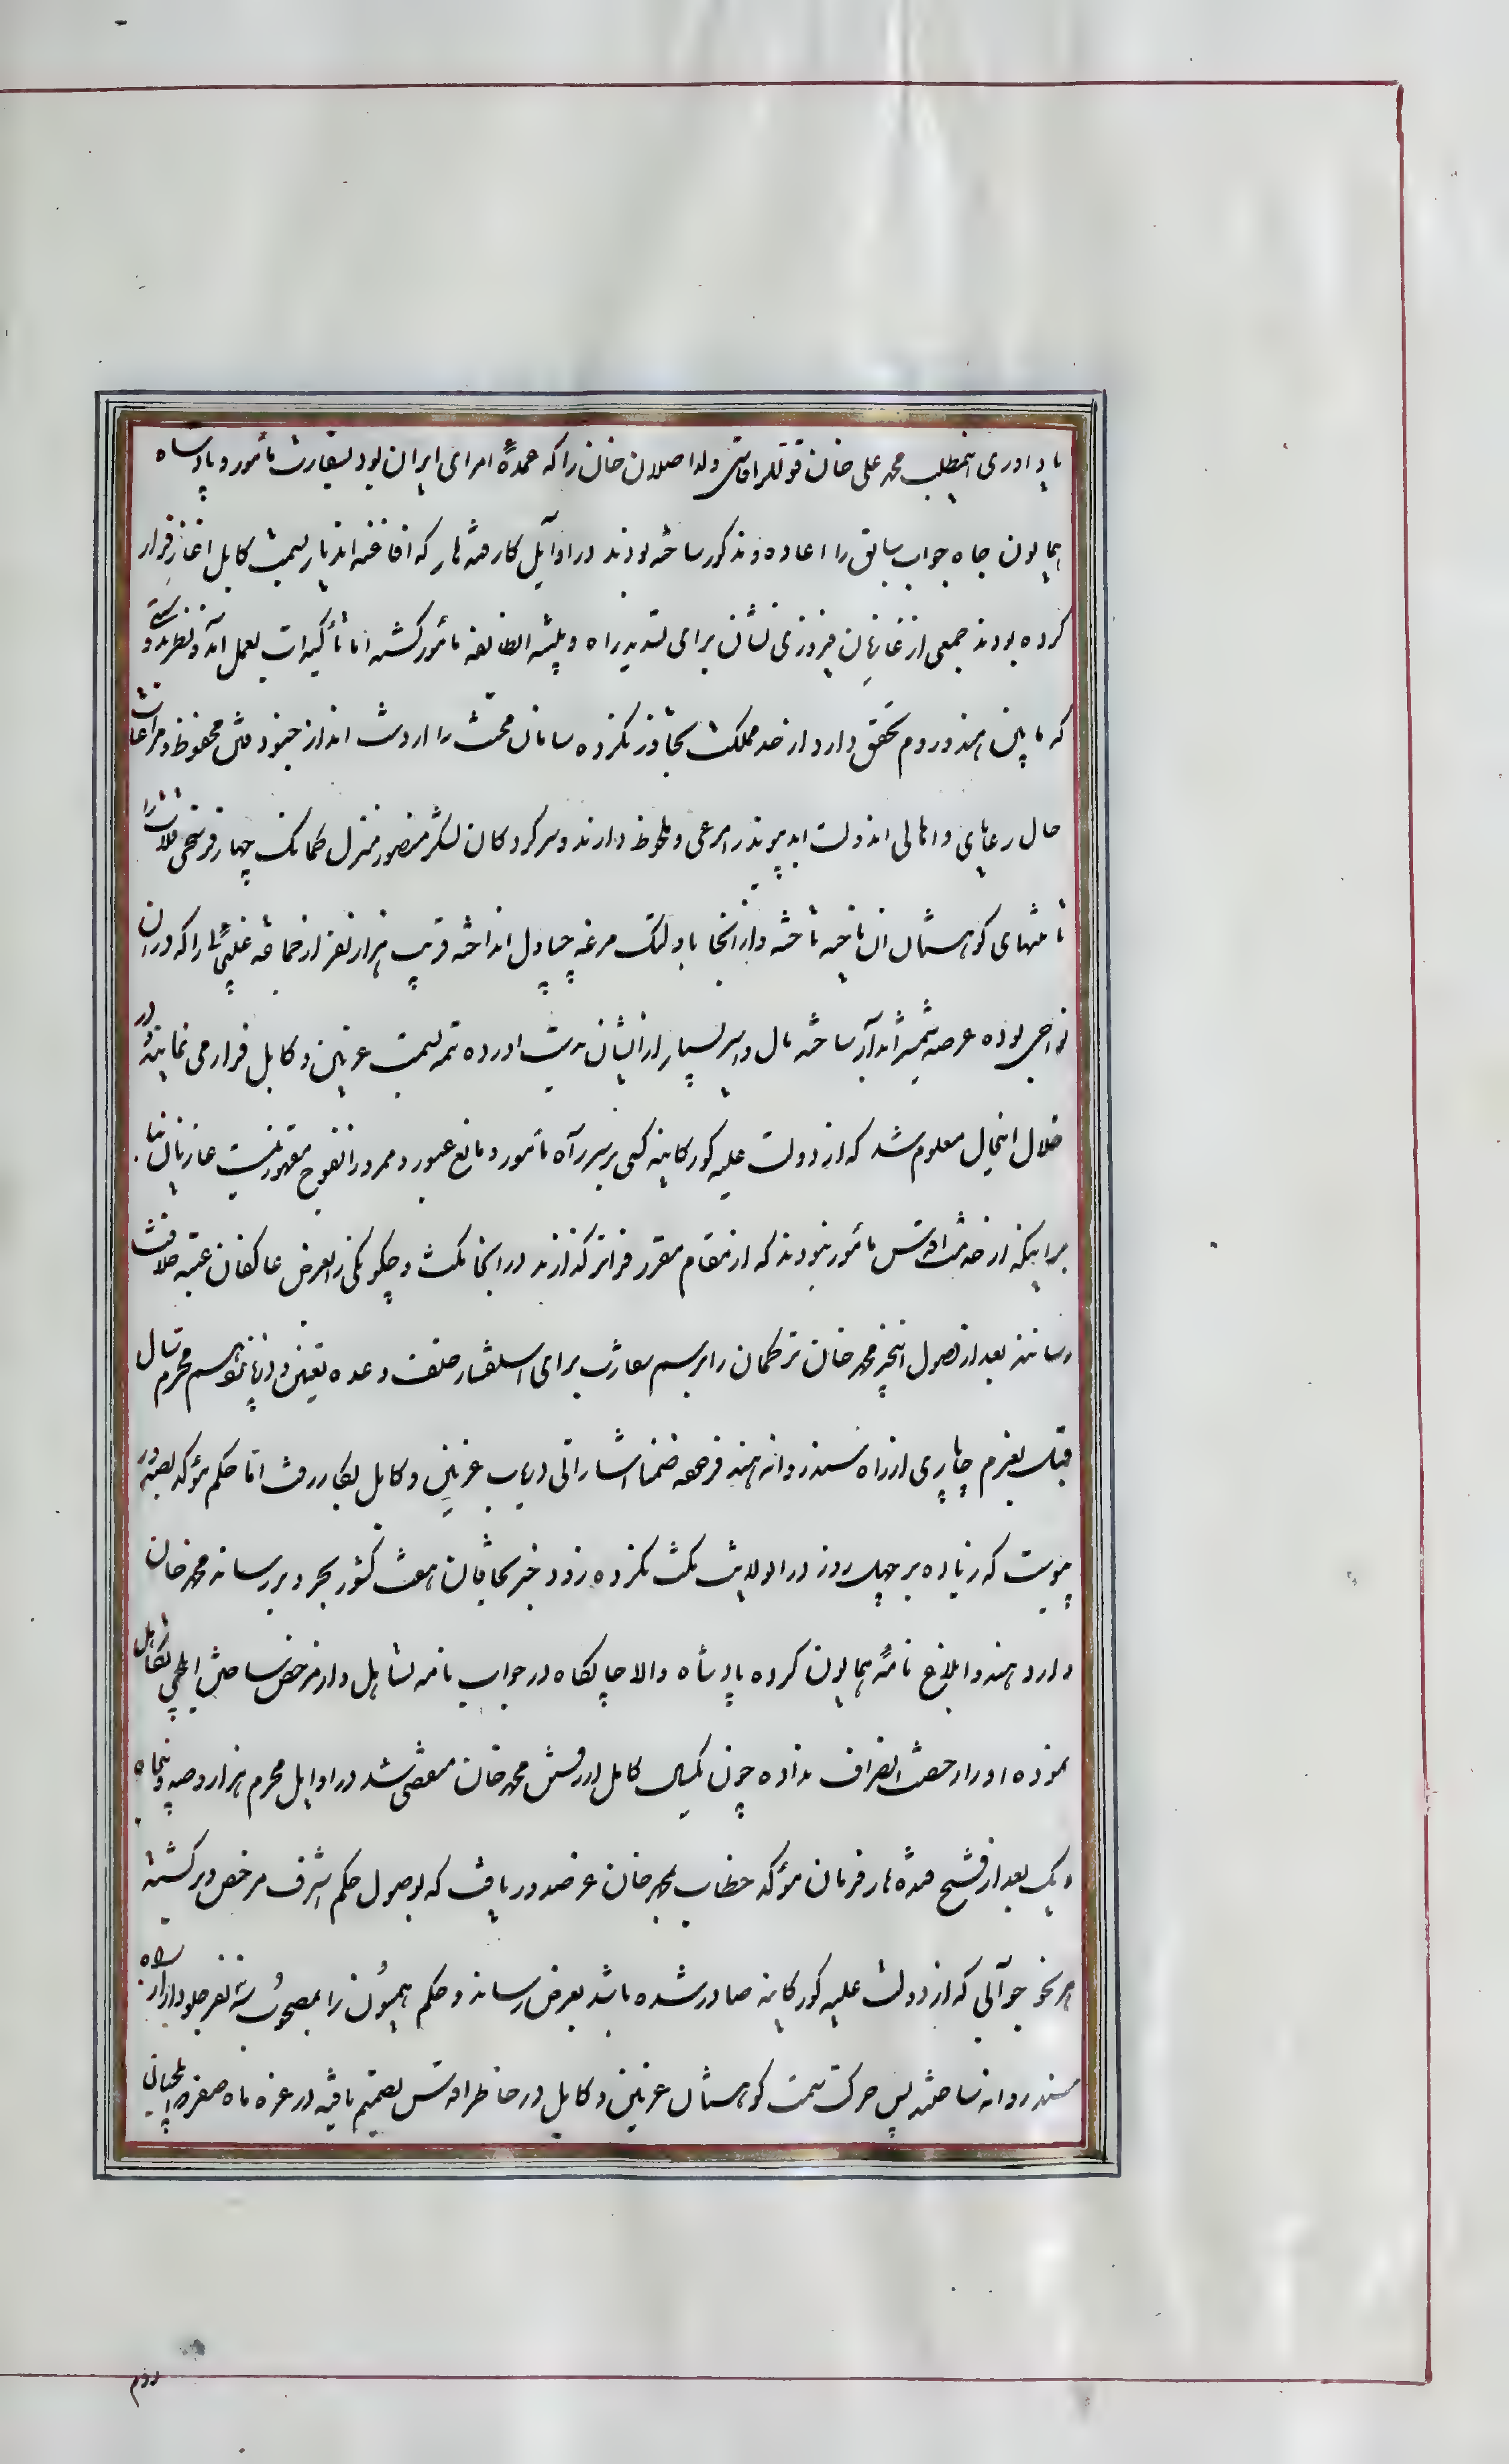 یاد اوری اینمطلب محمد علی خان قوللر اقاسی ولد اصلان خان را که عمدهٔ امرای ایران بود بسفارت مأمور و پادشاه
همایون جاه جواب سابق را اعاده و مذکور ساخته بودند در اوایل کار قندهار که افاغنه اندیار بسمت کابل اغاز فرار
کرده بودند جمعی از غازیان فیروزی نشان برای تسدید راه و تنبیه انطایفه مأمور گشته اما تأکیدات بعمل آمد و نظر بدوستی
که مابین هند و روم تحقق دارد از حد مملکت تجاوز نکرده سامان محبت را از دست انداز جنود فتن محفوظ و مراعات
حال رعایای و اهالی اندولت ابد پیوند را مرعی و ملحوظ دارند و سر کردکان لشکر منصور منزل طمانک چهار فرسخی قلات را
تا منتهای کوهستان ان ناحیه تاخته و از انجا باولنک مرغه چپاول انداخته قریب هزار نفر از جماعه غلیجائی را که در ان
نواحی بوده عرصه شمشیر ابدار ساخته مال و اسیر بسیار از ایشان بدست اورده تتمه بسمت غزنین و کابل فرار می نمایند و در
خلال اینحال معلوم شد که از دولت علیه کورکانیه کسی بر سر راه مأمور و مانع عبور و مرور انفوج مقهور نیست غازیان بنا
برا ینکه از خدمت اقدس مأمور نبودند که از مقام مقرر فراتر گذارند در انجا مکث و چکونکی را بعرض عاکفان عتبه خلافت
رسانند بعد از وصول اینخبر محمد خان ترکمان را برسم سفارت برای استفسار خلف وعده تعیین و در یازدهم محرم سال
قبل بعزم چاپاری از راه سند روانه هند فرموده ضمنا اشاراتی در باب غزنین و کابل بکار رفت اما حکم مؤکد بصدور
پیوست که زیاده بر چهل روز در انولایت مکث نکرده زود خبر بخاقان هفت کشور بحر و بر رساند محمد خان
وارد هند و ابلاغ نامهٔ همایون کرده پادشاه والا جایکاه در جواب نامه تساهل و از مرخص ساختن ایلچی تکاهل
نموده او را رخصت انصراف نداده چون یکسال کامل از رفتن محمد خان منقضی شد در اوایل محرم هزار و صد و پنجاه
و یک بعد از فتح قندهار فرمان مؤکد خطاب بمحمد خان عز صدور یافت که بوصول حکم اشرف مرخص و برکشته
هر نحو جوابی که از دولت علیه کورکانیه صادر شده باشد بعرض رساند و حکم همیون را بمصحوب سه نفر جلودار از راه
سند روانه ساختند پس حرکت سمت کوهستان غزنین و کابل در خاطر اقدس تصمیم یافته در غره ماه صفر ایلچیانی
روم